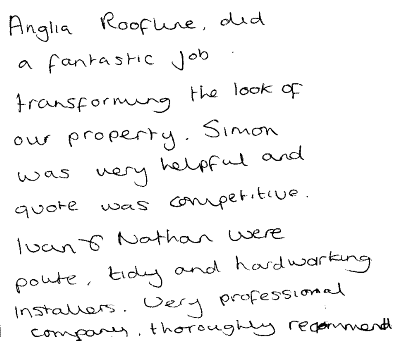 Anglia Roofline, did
a fantastic job.
transforming the look of
our property. Simon
was very helpful and
quote was competitive.
Ivan & Nathan were
polite, tidy and hardworking
installers. Very professional
company, thoroughly recommend